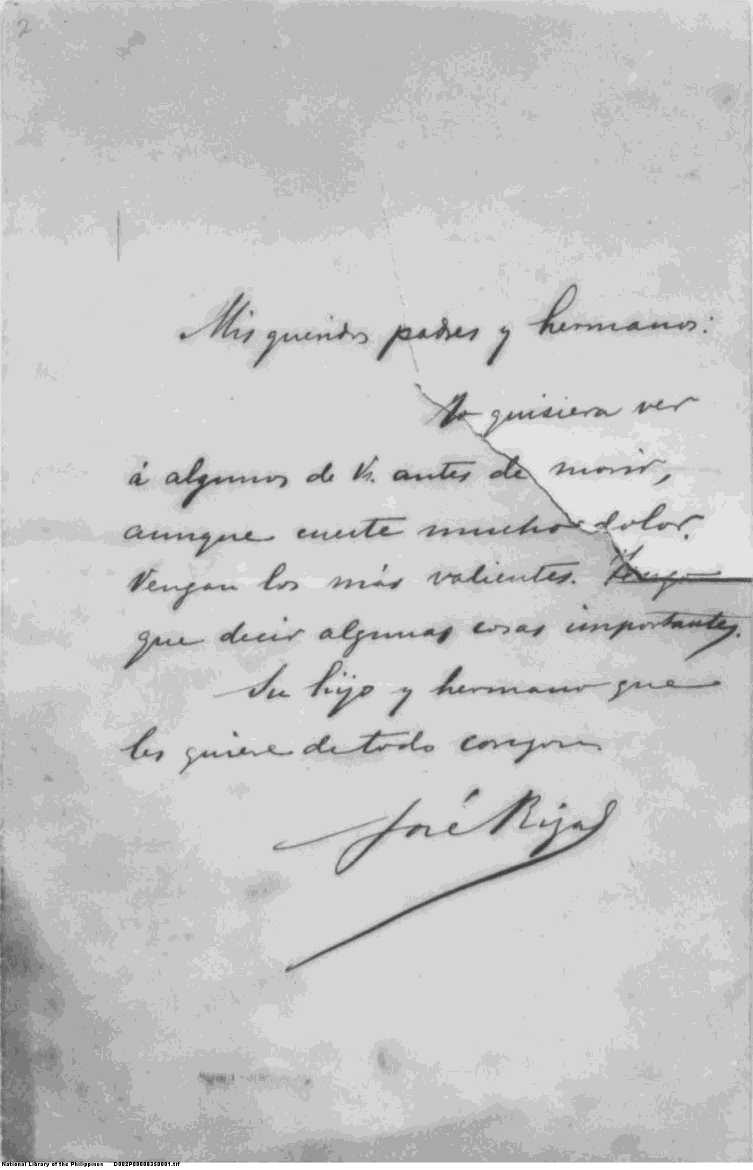 2
Mis queridos padres y hermanos:
Yo quisiera ver
á algunos de Vs. antes de morir,
aunque cueste mucho dolor.
Vengan los más valientes. Tengo
que decir algunas cosas importantes.
Su hijo y hermano que
les quiere de todo corazon
José Rizal
National Library of the Philippines D002P00000350001.tif